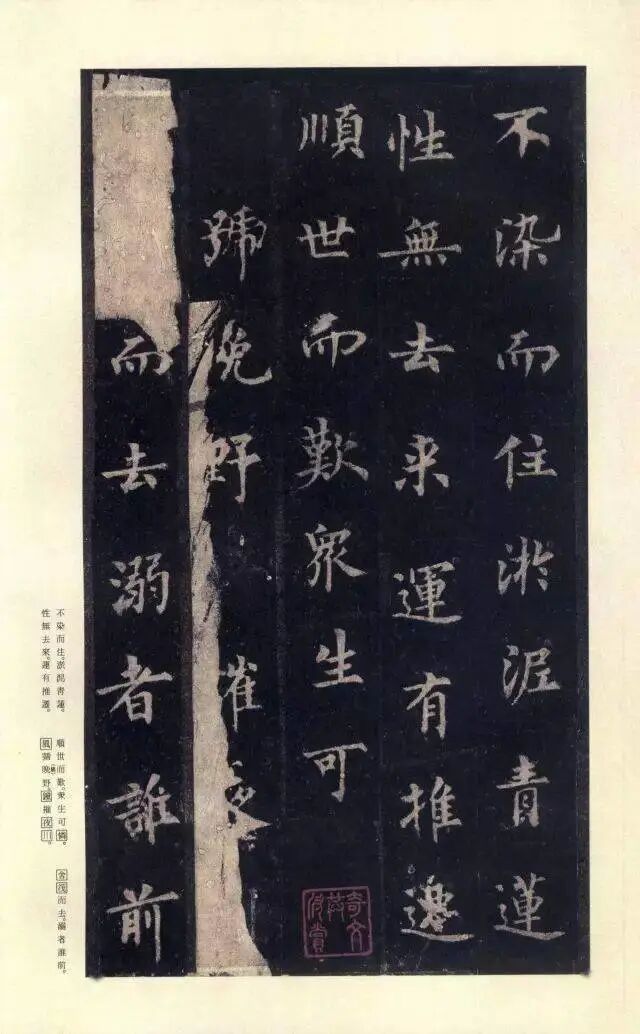 不染而住淤泥青蓮
性無去来運有推遷
順世而歎衆生可
號晚野
而去溺者誰前
奇文共欣賞
不染而住。淤泥青蓮。
性無去來。運有推遷。
順世而歎。衆生可
風號晚野。
而去。溺者誰前。